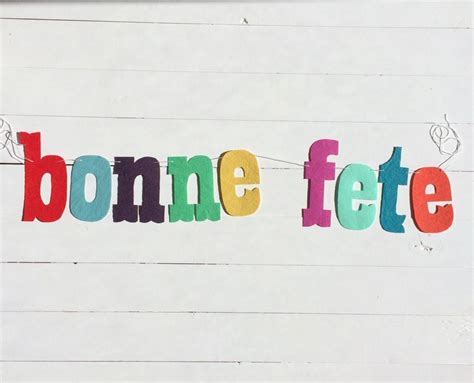 bonne fete